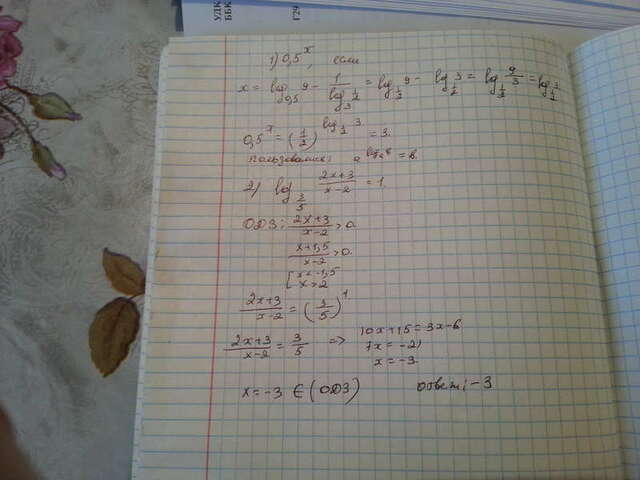 УДК
ББК
Г29
1) 0,5^x, если
x = log_{0,5} 9 - 1/(log_3 1/2) = log_{1/2} 9 - log_{1/2} 3 = log_{1/2} 9/3 = log_{1/2} 3
0,5^x = (1/2)^{log_{1/2} 3} = 3.
пользовались: a^{log_a b} = b.
2) log_{3/5} (2x+3)/(x-2) = 1.
ОДЗ: (2x+3)/(x-2) > 0.
(x+1,5)/(x-2) > 0.
[ x < -1,5
x > 2
(2x+3)/(x-2) = (3/5)^1
(2x+3)/(x-2) = 3/5 => 10x+15 = 3x-6
7x = -21
x = -3.
x = -3 ∈ (ОДЗ) ответ: -3